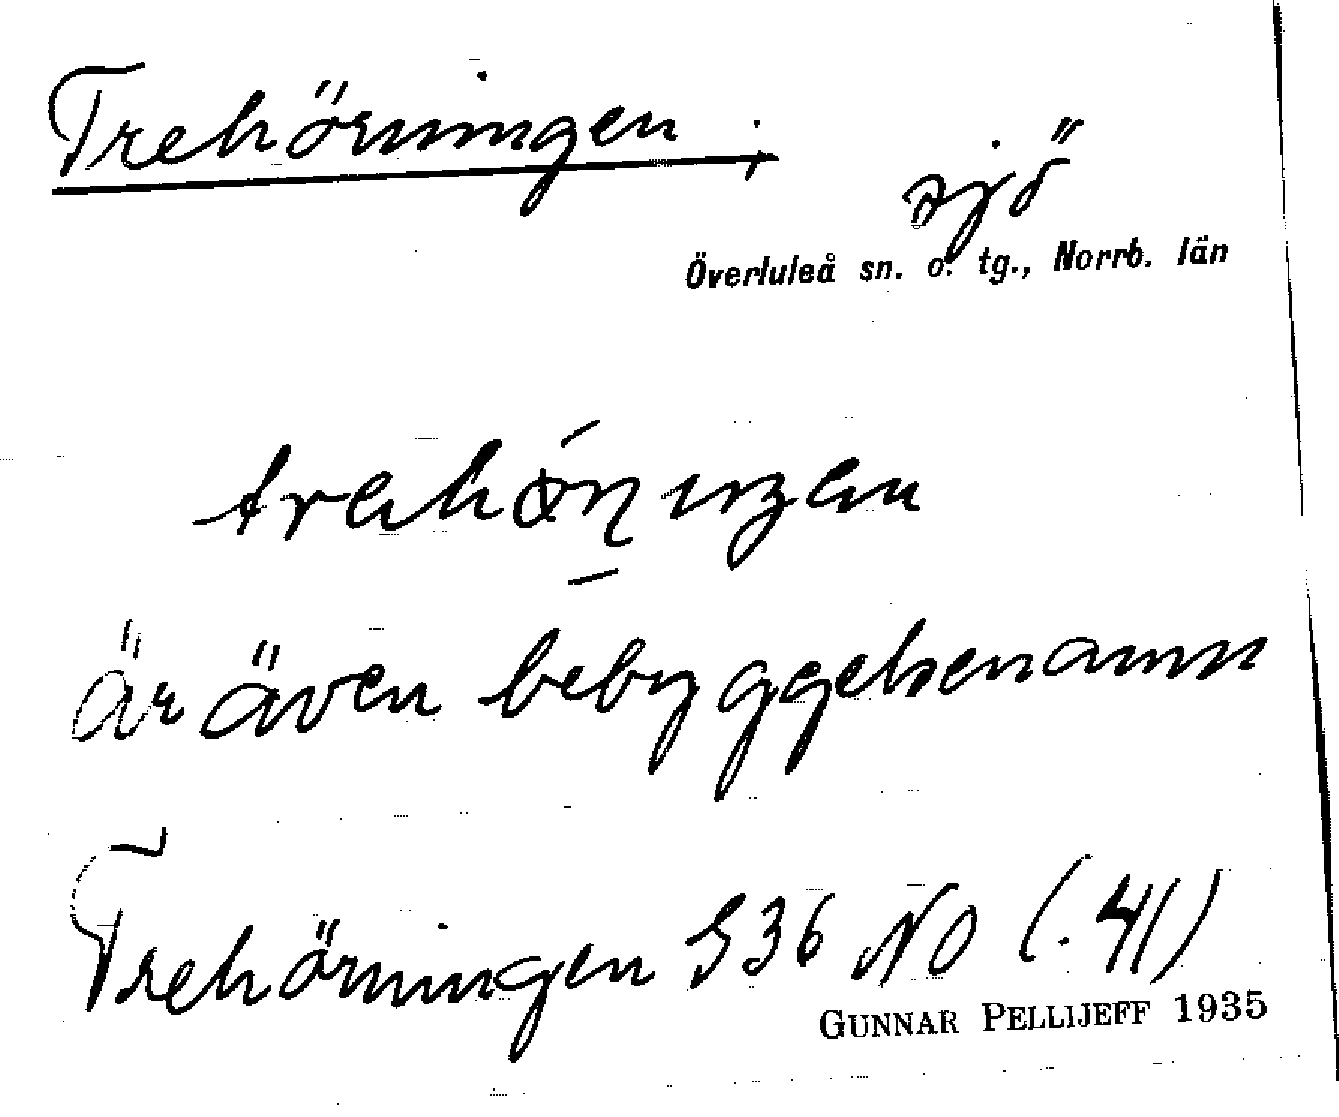 Trehörningen ;
sjö
Överluleå sn. o. tg., Norrb. län
är även bebyggelsenamn
Trehörningen S36 NO (.41)
GUNNAR PELLIJEFF 1935